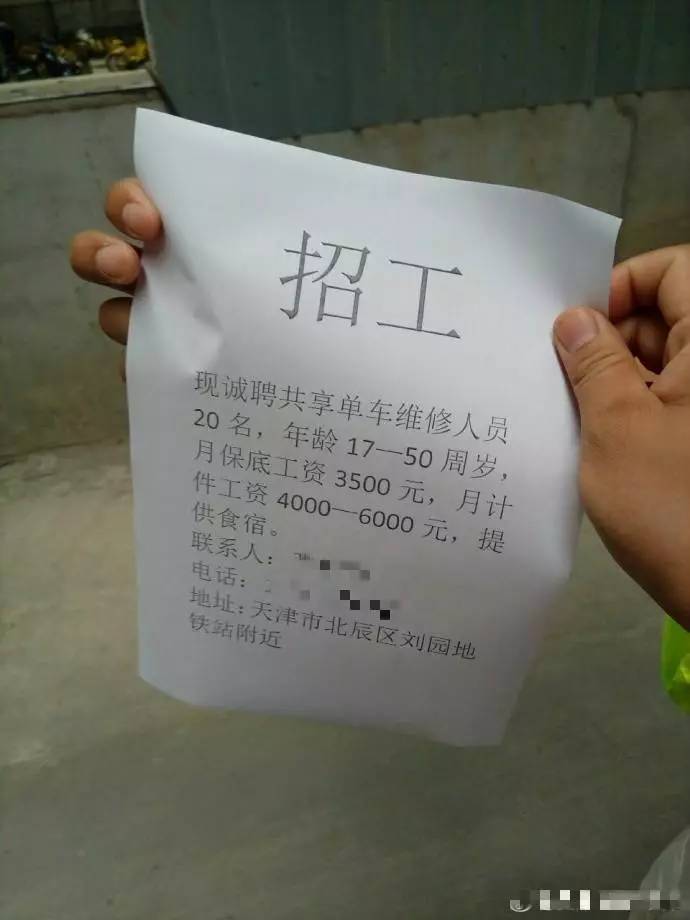 招工
现诚聘共享单车维修人员
20 名，年龄 17—50 周岁，
月保底工资 3500 元，月计
件工资 4000—6000 元，提
供食宿。
联系人：
电话：
地址：天津市北辰区刘园地
铁站附近